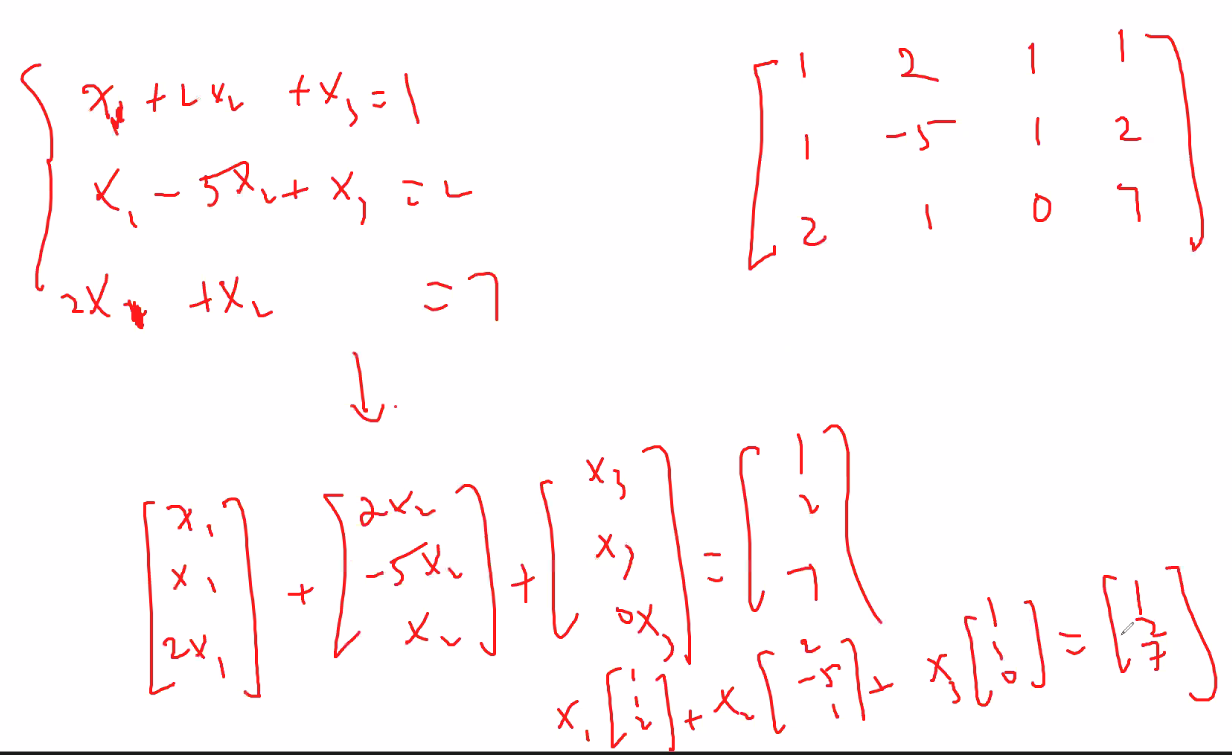 x₁ + 2x₂ + x₃ = 1
x₁ - 5x₂ + x₃ = 2
2x₁ + x₂ = 7
[1 2 1 1
1 -5 1 2
2 1 0 7]
↓
[x₁ x₁ 2x₁] + [2x₂ -5x₂ x₂] + [x₃ x₃ 0x₃] = [1 2 7]
x₁ [1 1 2] + x₂ [2 -5 1] + x₃ [1 1 0] = [1 2 7]